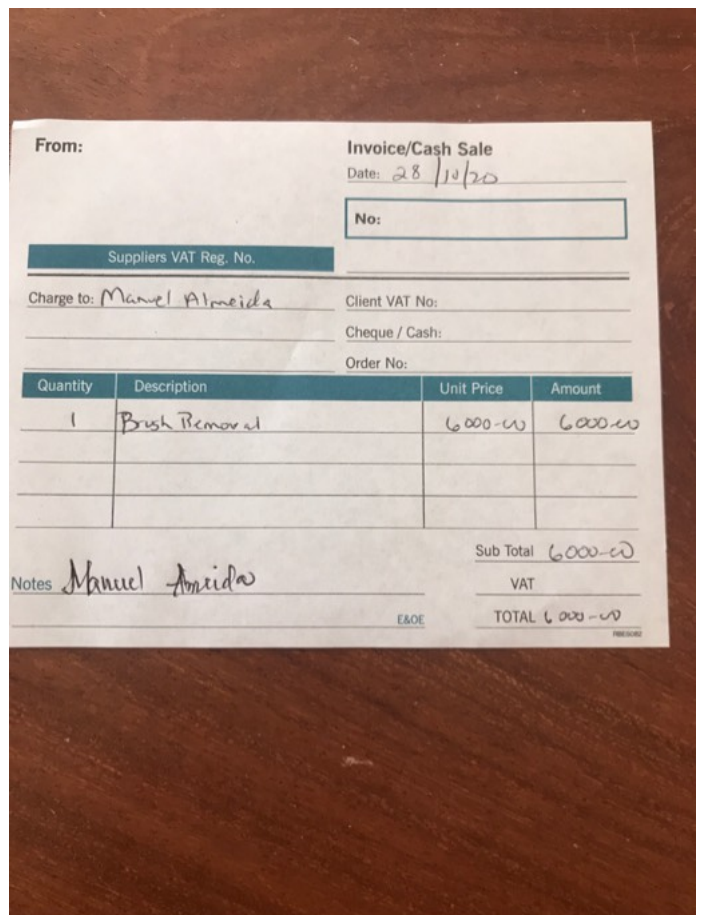 From:
Invoice/Cash Sale
Date: 28/10/20
No:
Suppliers VAT Reg. No.
Charge to: Manuel Almeida
Client VAT No:
Cheque / Cash:
Order No:
Quantity Description Unit Price Amount
1 Brush Removal 6000-00 6000-00
Sub Total 6000-00
Notes Manuel Ameida
VAT
E&OE
TOTAL 6000-00